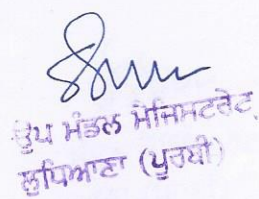 ਉਪ ਮੰਡਲ ਮੈਜਿਸਟਰੇਟ,
ਲੁਧਿਆਣਾ (ਪੂਰਬੀ)